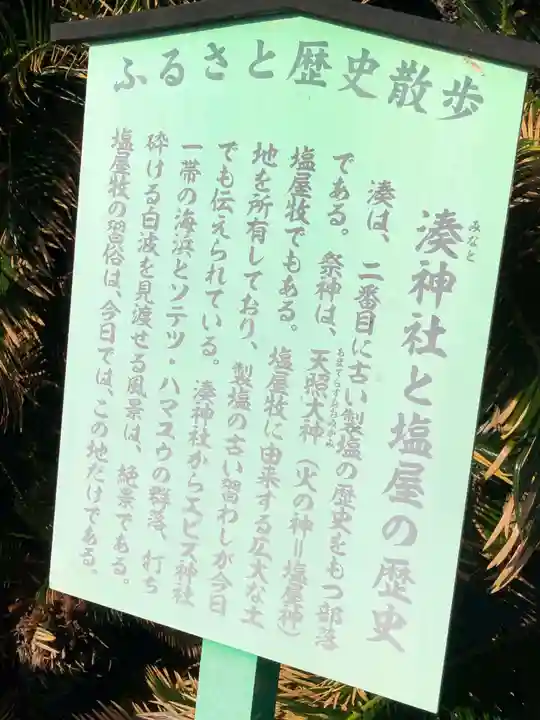 ふるさと歴史散歩
湊神社と塩屋の歴史
みなと
湊は、二番目に古い製塩の歴史をもつ部落
である。祭神は、天照大神（火の神＝塩屋神）
あまてらすおおみかみ
塩屋牧でもある。塩屋牧に由来する広大な土
地を所有しており、製塩の古い習わしが今日
でも伝えられている。湊神社からエビス神社
一帯の海浜とソテツ・ハマユウの群落、打ち
砕ける白波を見渡せる風景は、絶景である。
塩屋牧の習俗は、今日では、この地だけである。